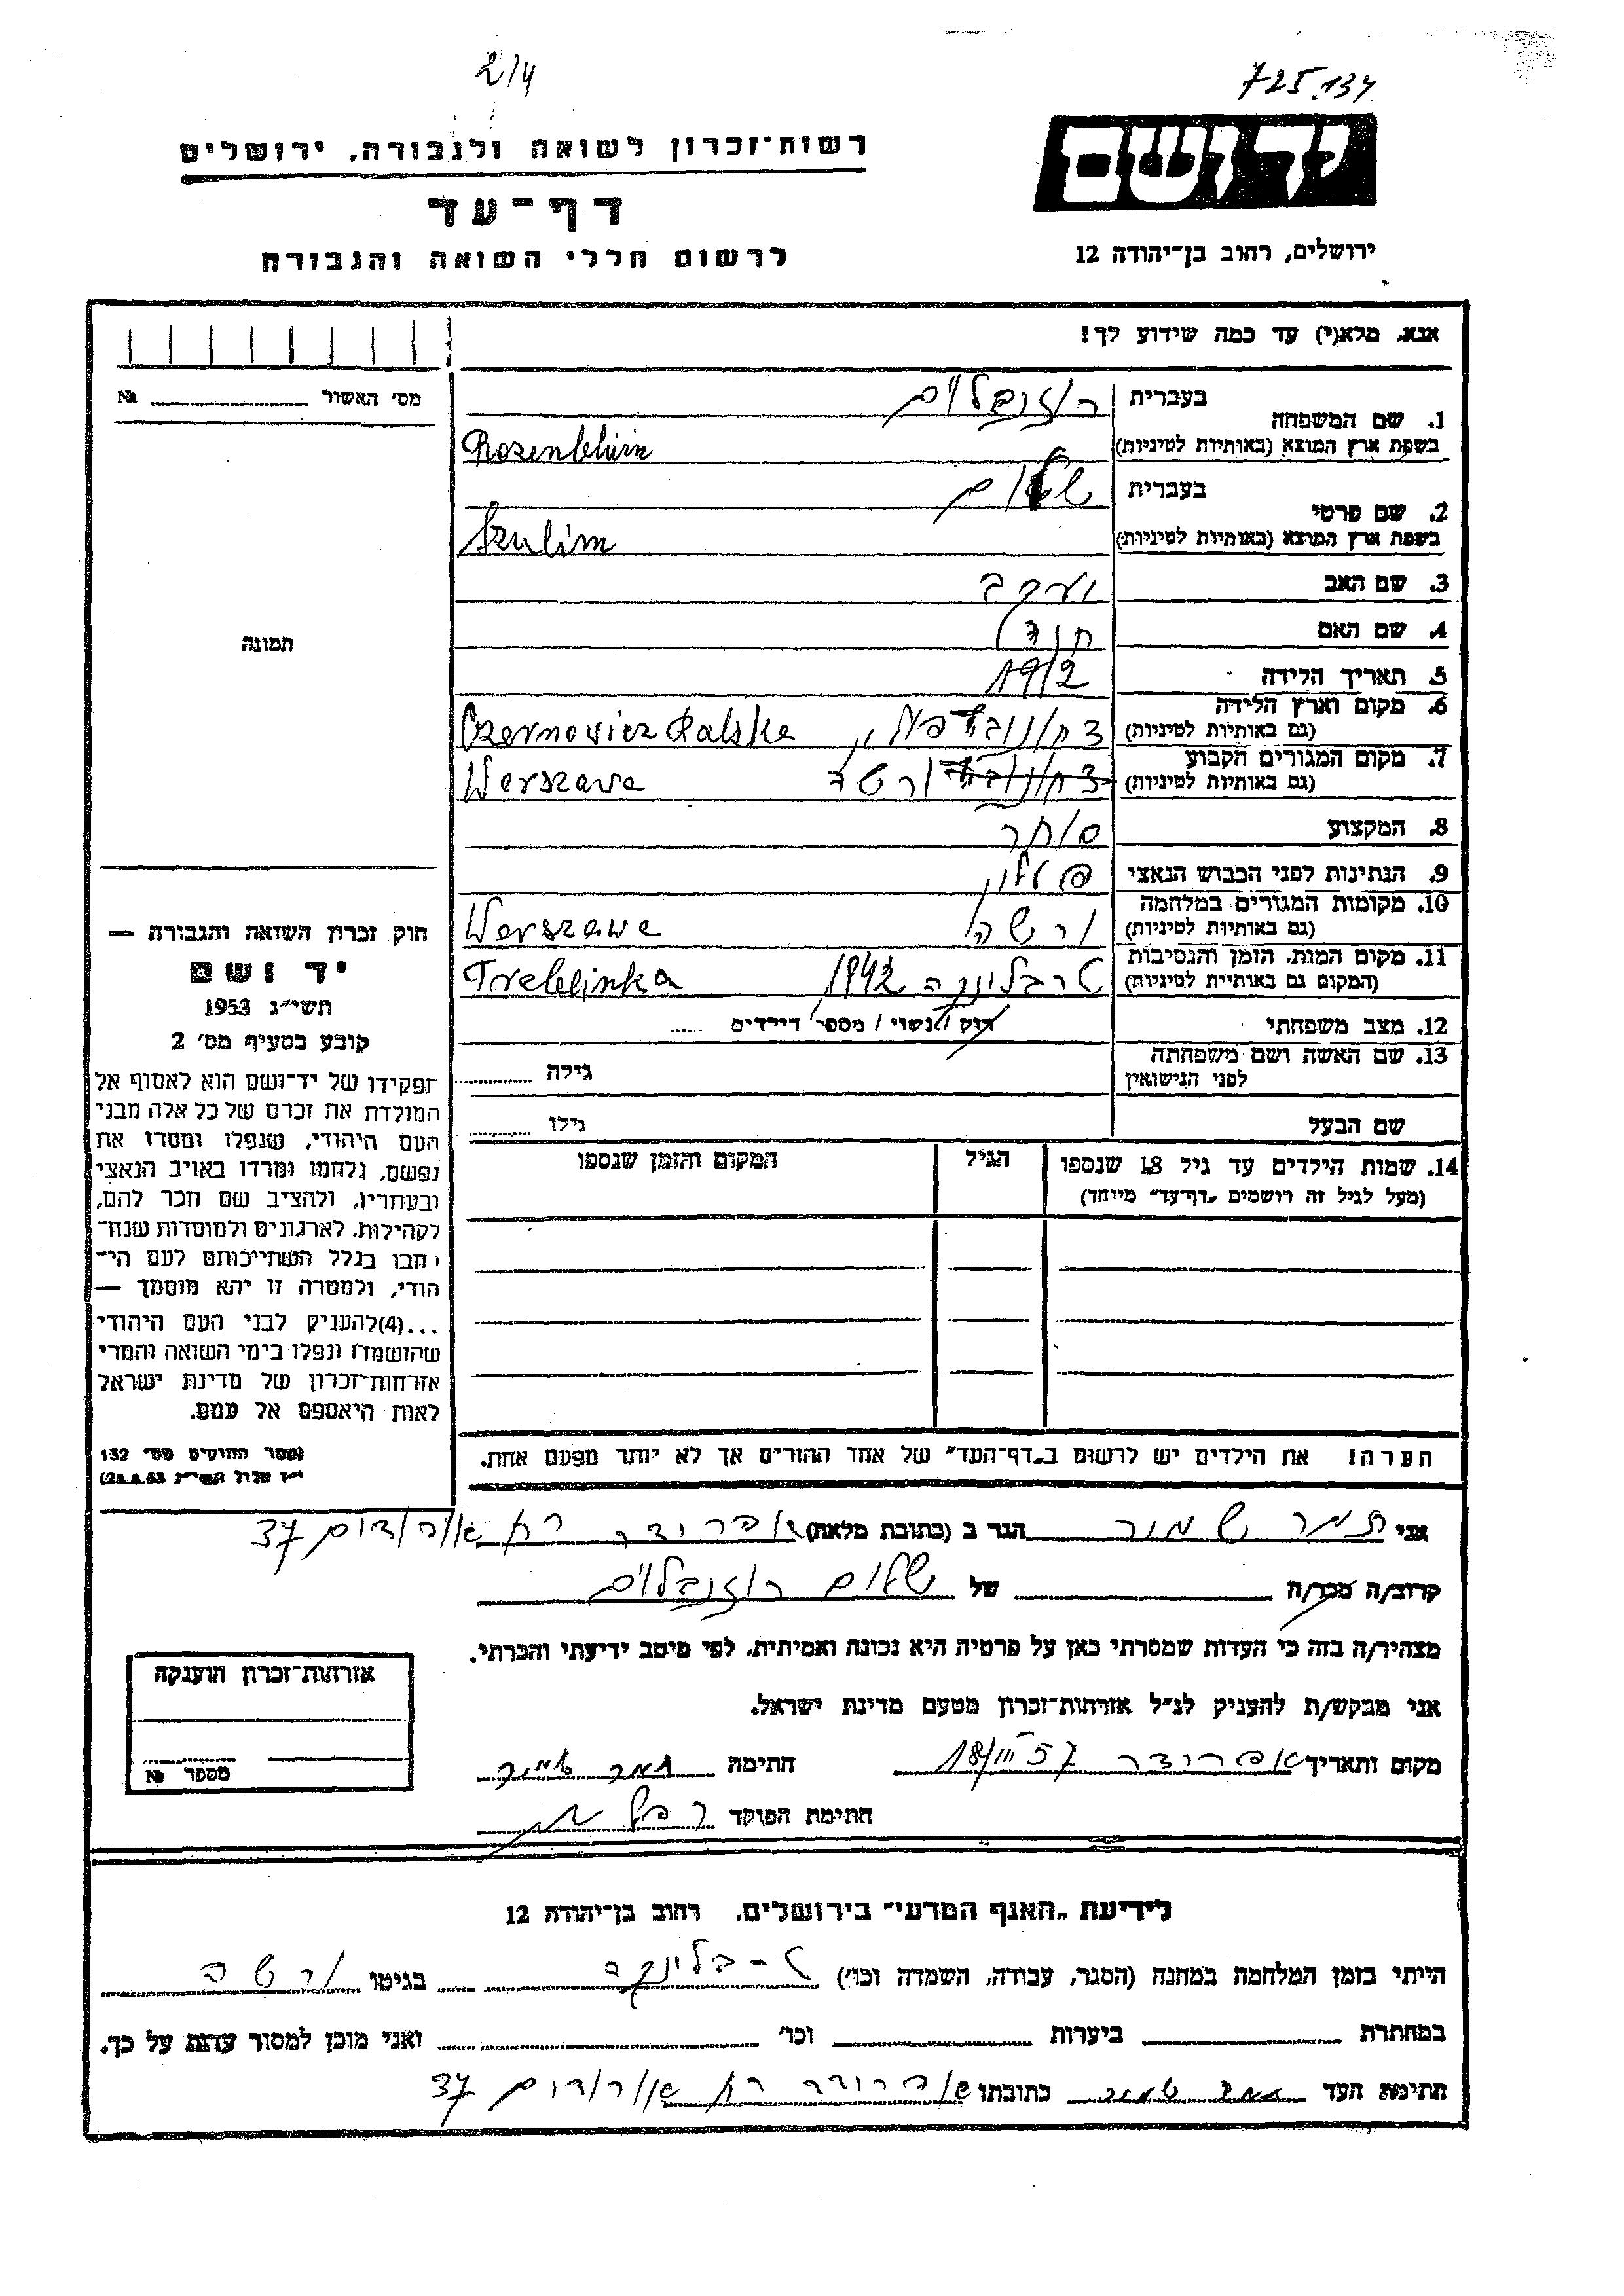 2/4
725.134
רשות־זכרון לשואה ולגבורה, ירושלים
יד ושם
דף־עד
לרשום חללי השואה והגבורה
ירושלים, רחוב בן־יהודה 12
אנא, מלא(י) עד כמה שידוע לך!
מס׳ האשור № 
1. שם המשפחה
בעברית רוזנבלום
בשפת ארץ המוצא (באותיות לטיניות) Rosenblum
2. שם פרטי
בעברית שלום
בשפת ארץ המוצא (באותיות לטיניות) Szulim
3. שם האב יעקב
4. שם האם חוה
5. תאריך הלידה 1912
6. מקום וארץ הלידה
(גם באותיות לטיניות) Czernovicz Polska
7. מקום המגורים הקבוע
(גם באותיות לטיניות) ורשה Werszawa
8. המקצוע סוחר
9. הנתינות לפני הכבוש הנאצי פולין
10. מקומות המגורים במלחמה
(גם באותיות לטיניות) ורשה Werszawa
11. מקום המות, הזמן והנסיבות
(המקום גם באותיות לטיניות) טרבלינקה 1942 Treblinka
12. מצב משפחתי רוק / נשוי / מספר הילדים
13. שם האשה ושם משפחתה
לפני הנישואין גילה
שם הבעל גילו
14. שמות הילדים עד גיל 18 שנספו
(מעל לגיל זה רושמים „דף־עד" מיוחד)
הגיל
המקום והזמן שנספו
הערה! את הילדים יש לרשום ב„דף־העד" של אחד ההורים אך לא יותר מפעם אחת.
תמונה
חוק זכרון השואה והגבורה —
יד ושם
תשי״ג 1953
קובע בסעיף מס׳ 2
תפקידו של יד־ושם הוא לאסוף אל
המולדת את זכרם של כל אלה מבני
העם היהודי, שנפלו ומסרו את
נפשם, נלחמו ומרדו באויב הנאצי
ובעוזריו, ולהציב שם וזכר להם,
לקהילות, לארגונים ולמוסדות שנח־
רבו בגלל השתייכותם לעם הי־
הודי, ולמטרה זו יהא מוסמך —
...(4)להעניק לבני העם היהודי
שהושמדו ונפלו בימי השואה והמרי
אזרחות־זכרון של מדינת ישראל
לאות היאספם אל עמם.
(ספר החוקים מס׳ 132
י״ז אלול תשי״ג 28.8.53)
אני תמר שמור הגר ב (כתובת מלאה) 37
קרוב/ה מכר/ה של שלום רוזנבלום
מצהיר/ה בזה כי העדות שמסרתי כאן על פרטיה היא נכונה ואמיתית, לפי מיטב ידיעתי והכרתי.
אני מבקש/ת להעניק לנ״ל אזרחות־זכרון מטעם מדינת ישראל.
מקום ותאריך 18/III 57 חתימה תמר שמור
חתימת הפוקד
אזרחות־זכרון הוענקה
מספר №
לידיעת „האגף המדעי" בירושלים, רחוב בן־יהודה 12
הייתי בזמן המלחמה במחנה (הסגר, עבודה, השמדה וכו׳) טרבלינקה בגיטו ורשה
במחתרת ביערות וכו׳ ואני מוכן למסור עדות על כך.
חתימת העד תמר שמור כתובתו 37